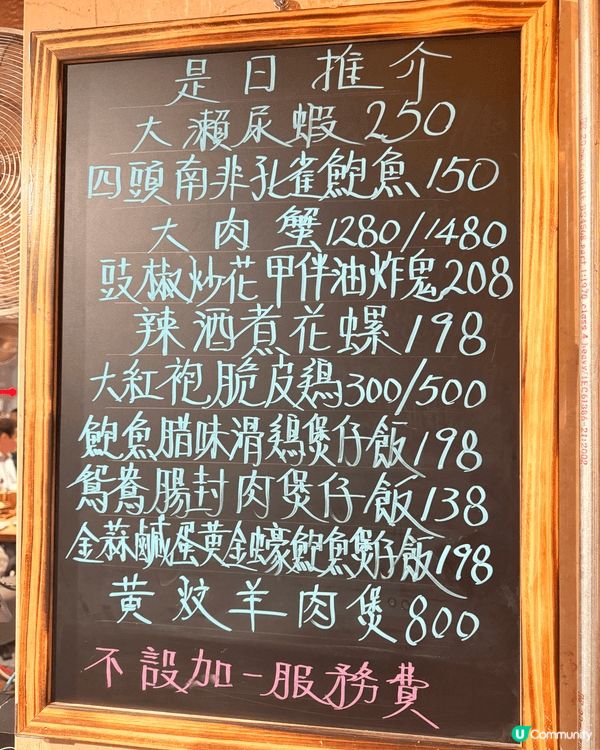 是日推介
大瀨尿蝦250
四頭南非孔雀鮑魚150
大肉蟹1280/1480
豉椒炒花甲伴油炸鬼208
辣酒煮花螺198
大紅袍脆皮鷄300/500
鮑魚腊味滑鷄煲仔飯198
鴛鴦腸封肉煲仔飯138
金蒜鹹蛋黄金蠔鮑魚煲仔飯198
黄炆羊肉煲800
不設加一服務費
U Community